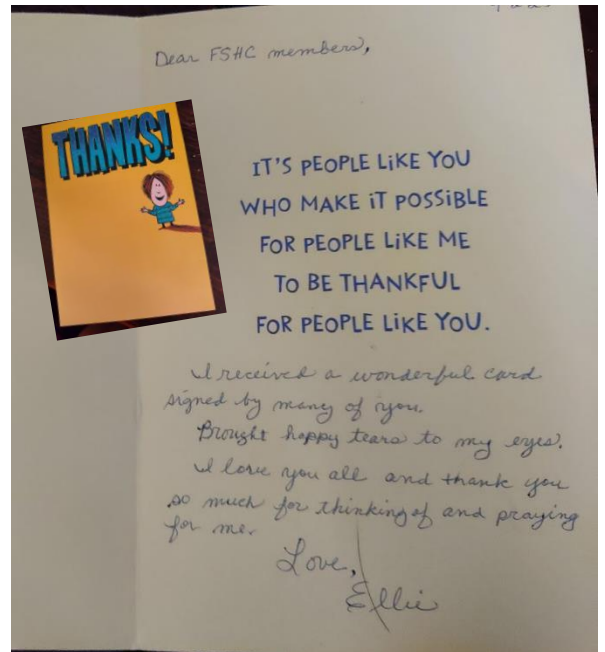 Dear FSHC members,
THANKS!
IT'S PEOPLE LIKE YOU
WHO MAKE IT POSSIBLE
FOR PEOPLE LIKE ME
TO BE THANKFUL
FOR PEOPLE LIKE YOU.
I received a wonderful card
signed by many of you.
Brought happy tears to my eyes.
I love you all and thank you
so much for thinking of and praying
for me.
Love,
Ellie